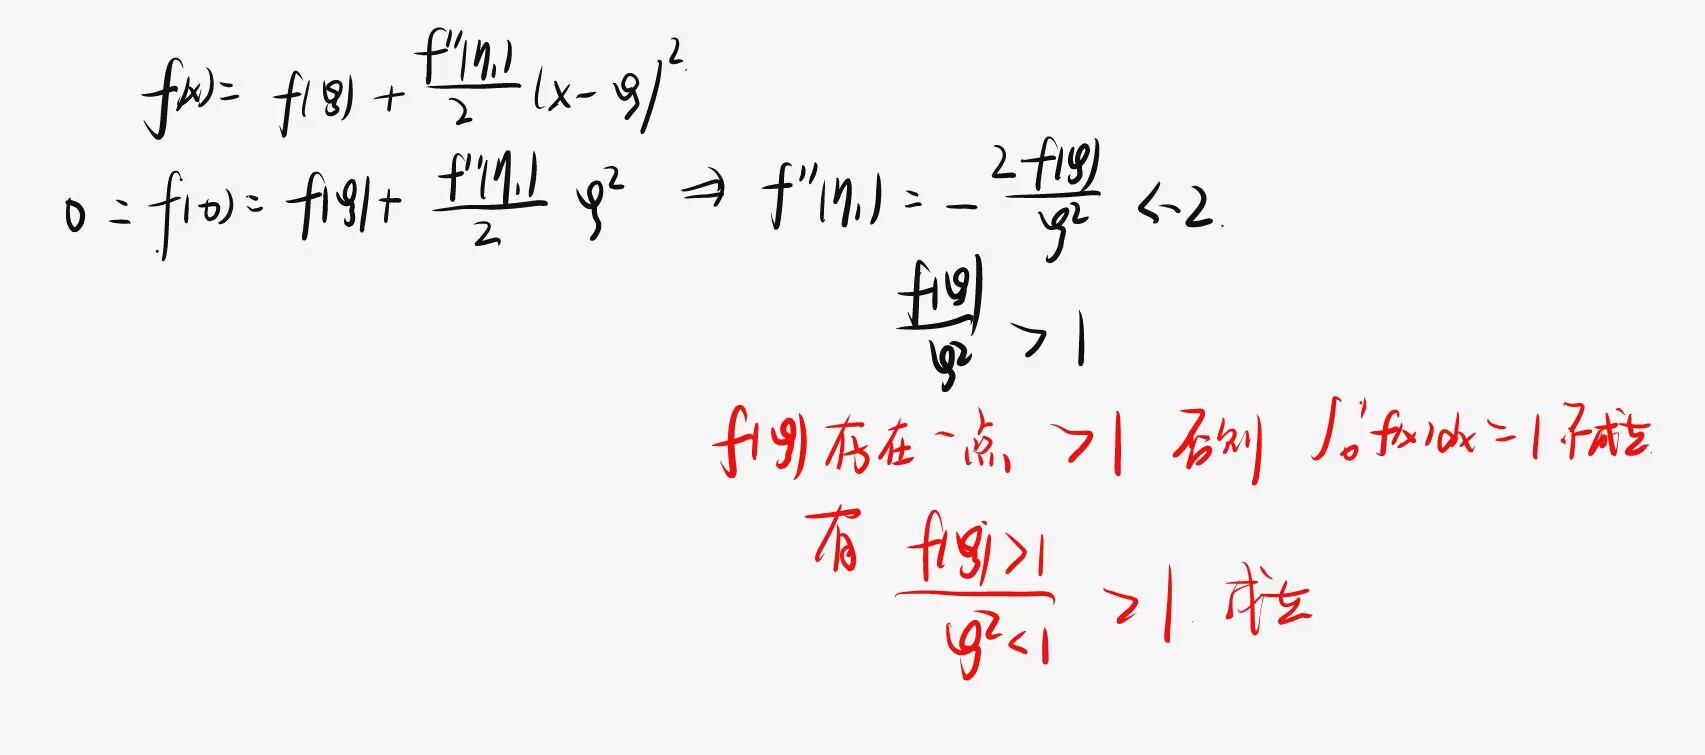 f(x) = f(ξ) + f''(η₁)/2 (x-ξ)²
0 = f(0) = f(ξ) + f''(η₁)/2 ξ² ⇒ f''(η₁) = - 2f(ξ)/ξ² <-2.
f(ξ)/ξ² > 1
f(ξ) 存在一点 >1 否则 ∫₀¹ f(x)dx = 1 不成立
有 f(ξ)>1/ξ²<1 >1. 成立